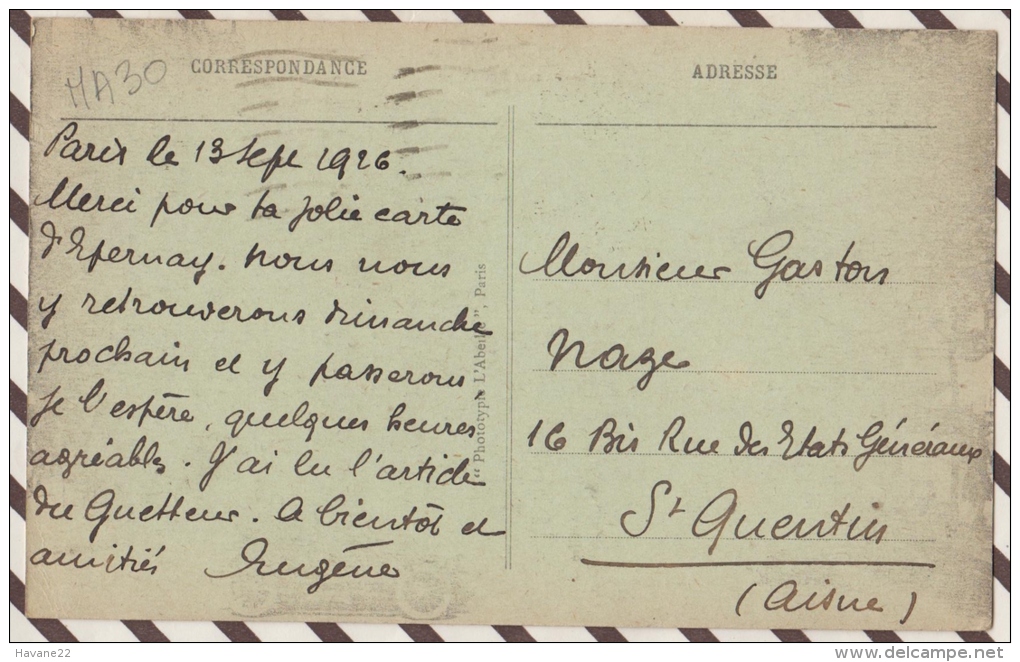 MA30
CORRESPONDANCE
Paris le 13 Sept 1926.
Merci pour ta jolie carte
d'Epernay. Nous nous
y retrouverons dimanche
prochain et y passerons
je l'espère, quelques heures
agréables. J'ai lu l'article
du Guetteur. A bientôt et
amitiés Eugène
"Phototypie L'Abeille", Paris
ADRESSE
Monsieur Gaston
Naze
16 Bis Rue des Etats Généraux
St Quentin
(Aisne)
Havane22
delcampe.net